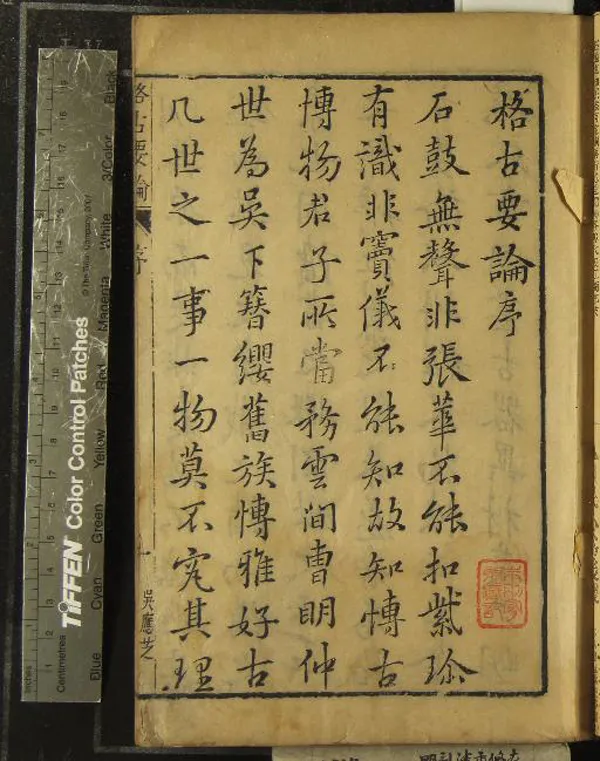 格古要論序
石鼓無聲非張華不能扣紫珍
有識非竇儀不能知故知愽古
博物君子所當務雲間曹明仲
世為吳下簪纓舊族愽雅好古
凡世之一事一物莫不究其理
格古要論 序
吳應芝
TIFFEN Color Control Patches
© The Tiffen Company, 2007
Inches
Centimetres
Blue Cyan Green Yellow Red Magenta White 3/Color Black